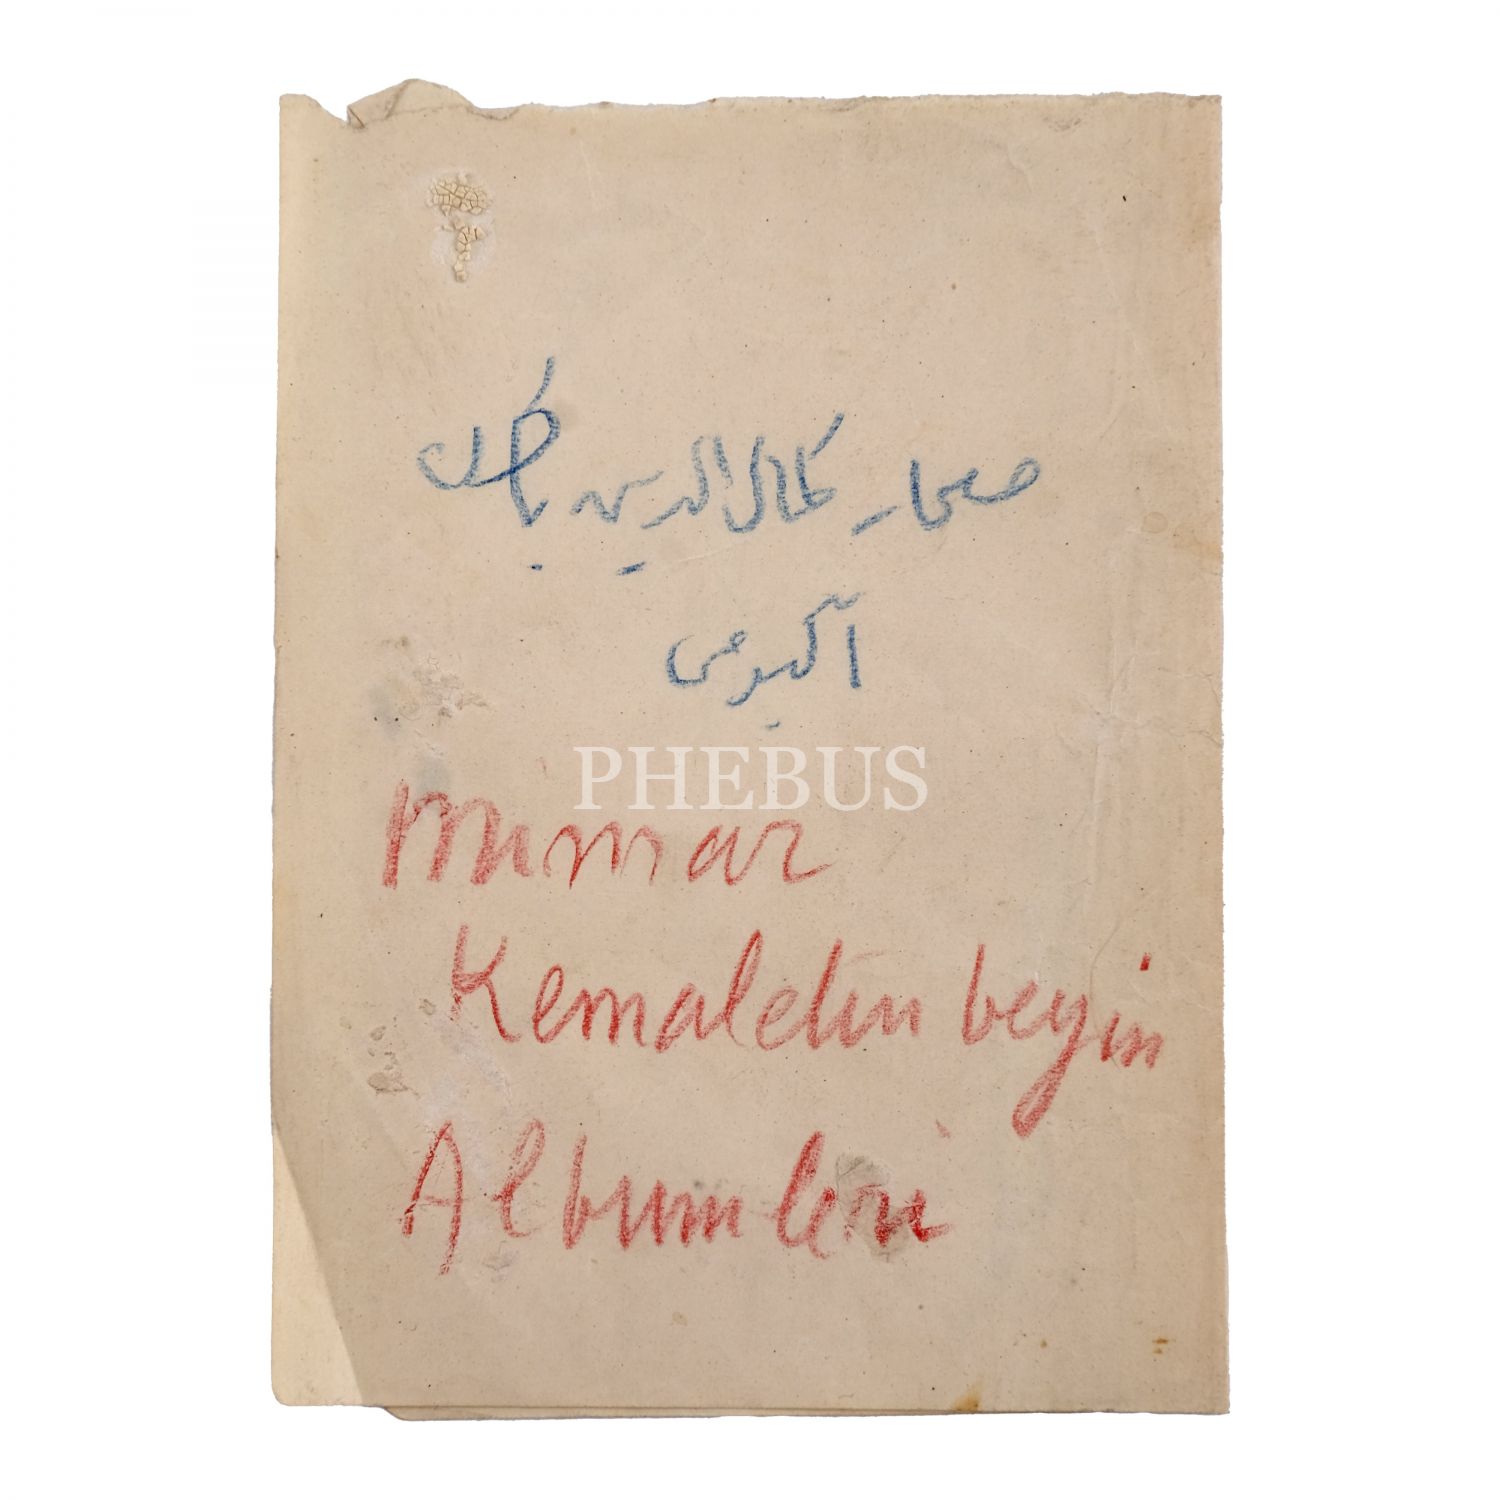 معمار كمال الدين بك
PHEBUS
mimar
Kemaletin beyin
Albumleri